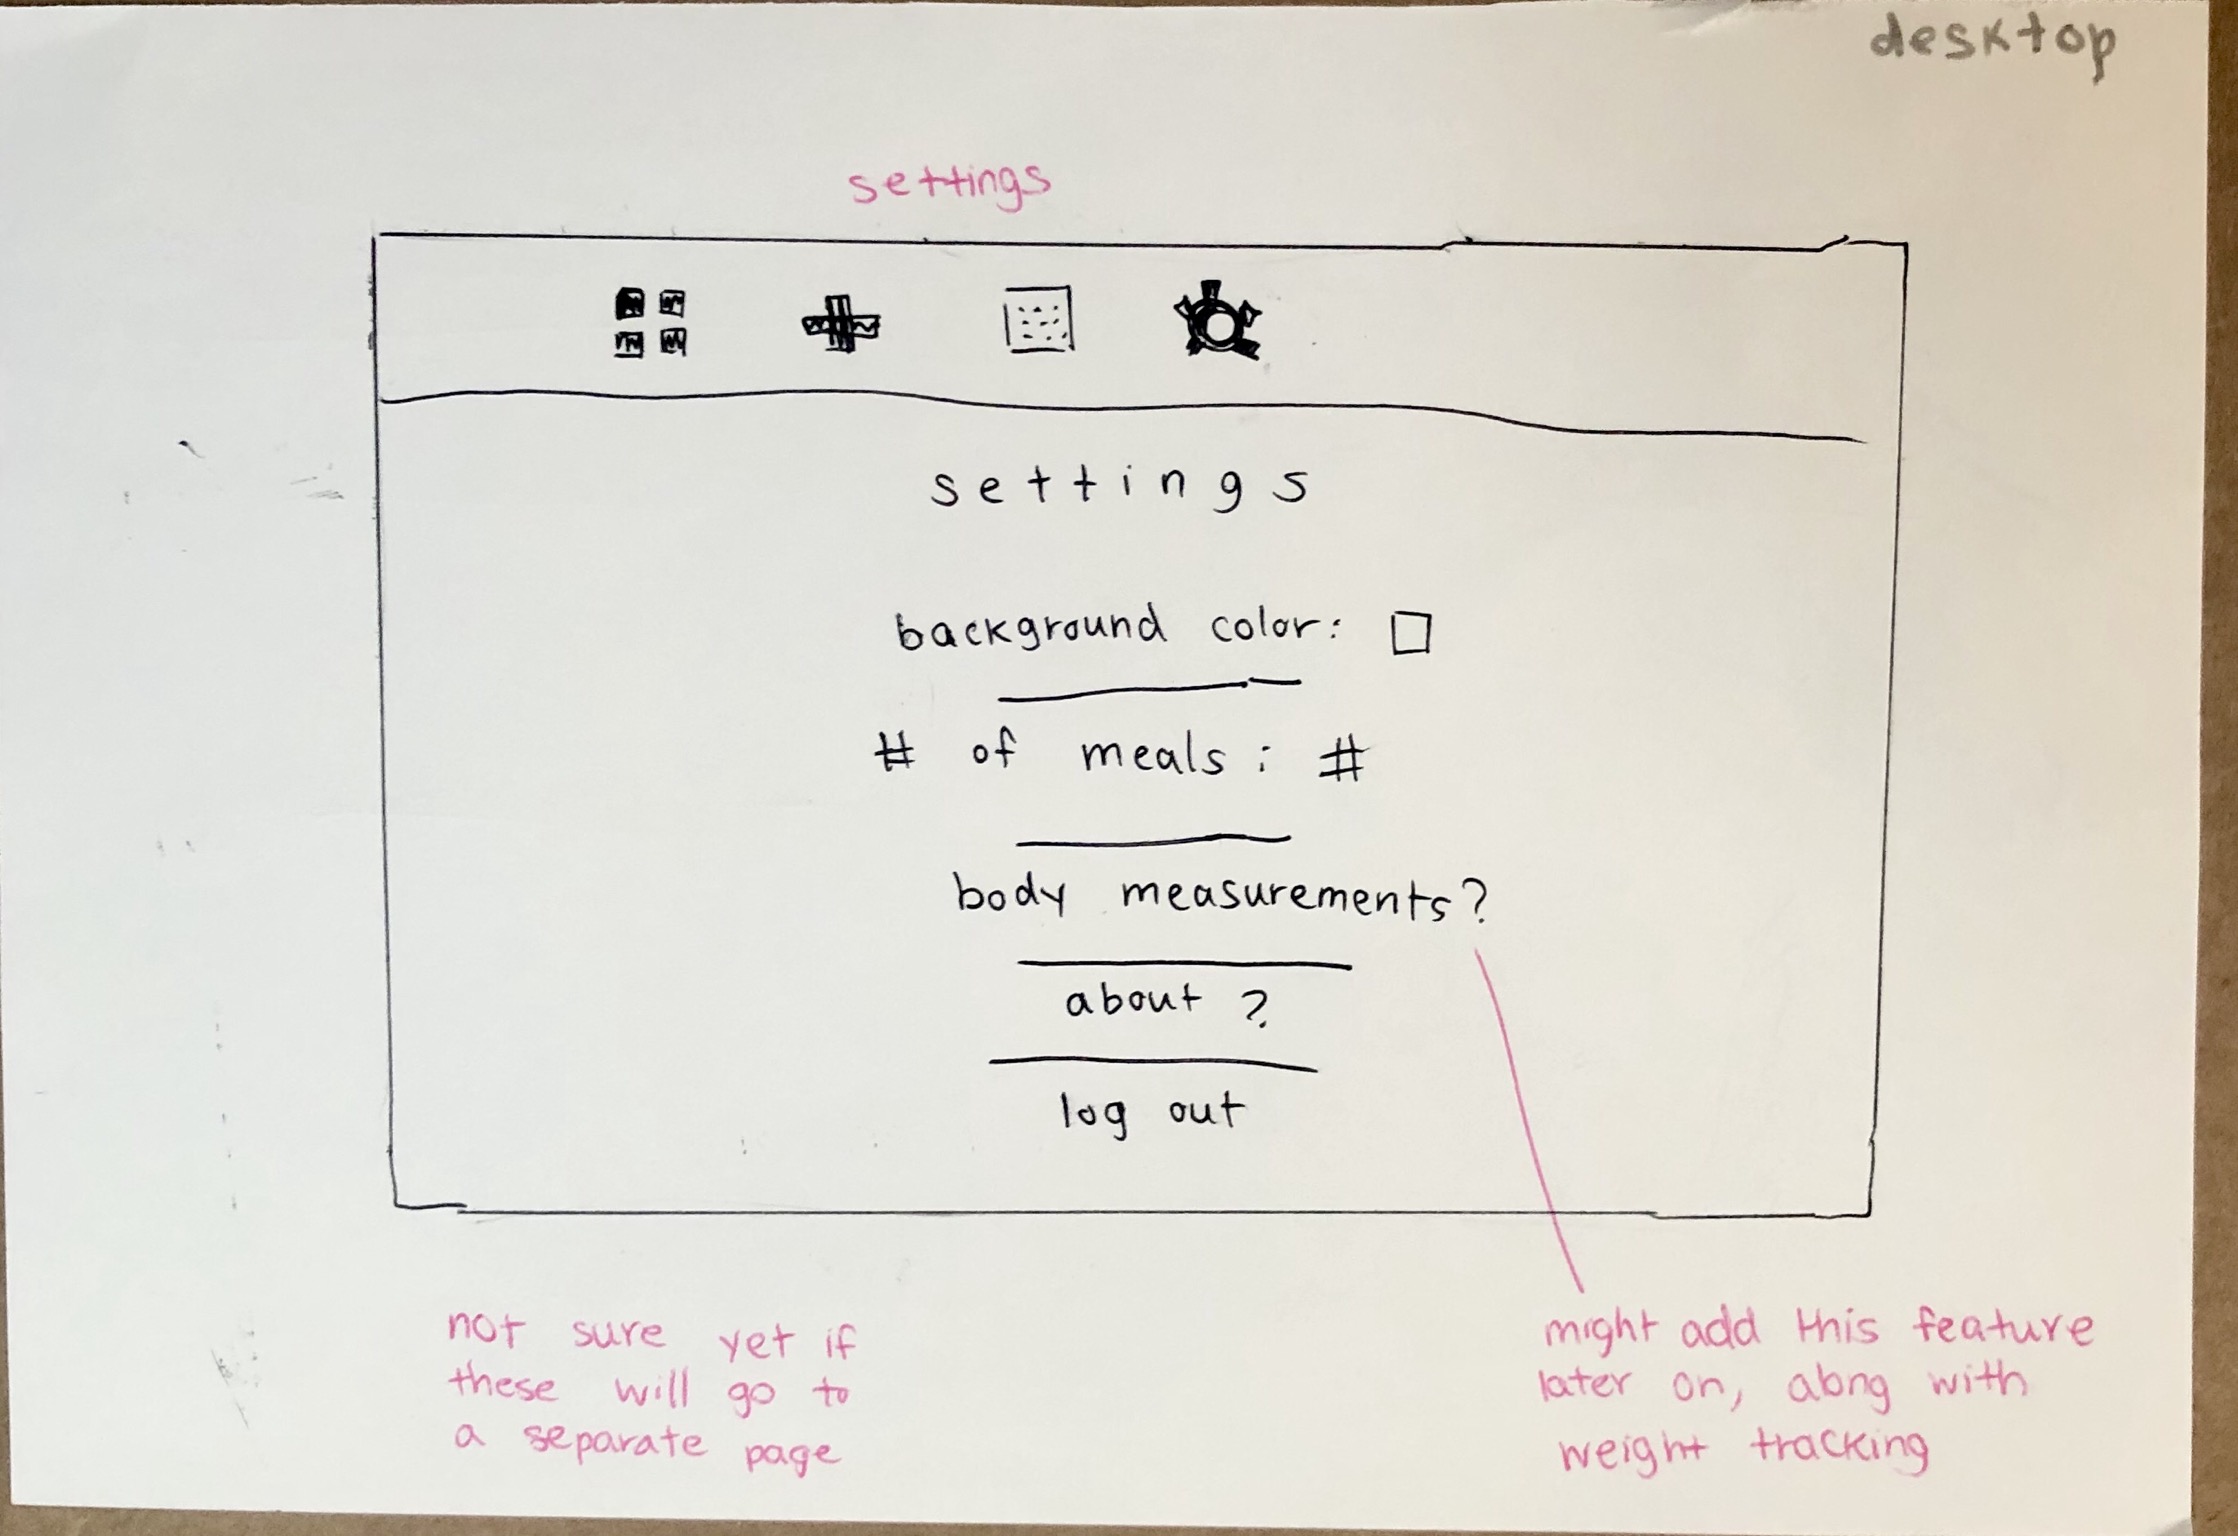 desktop
settings
settings
background color:
# of meals : #
body measurements?
about ?
log out
not sure yet if
these will go to
a separate page
might add this feature
later on, along with
weight tracking